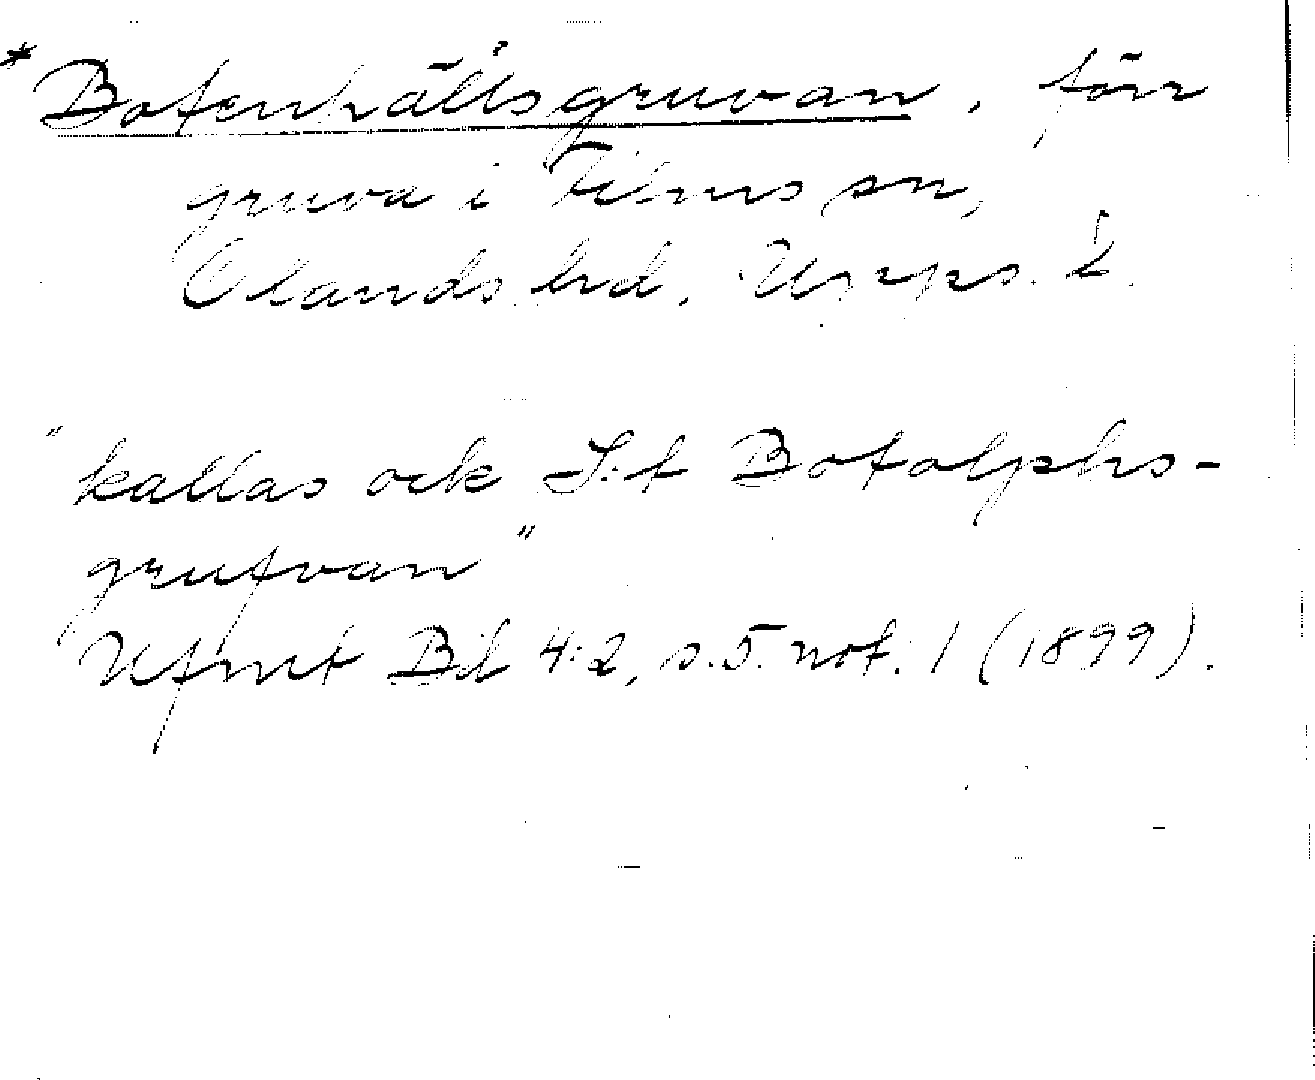 *Botenhällsgruvan, förr
gruva i Films sn,
Olands hd, Upps. l.
"kallas ock S:t Botolphs-
grufvan"
Ufmt Bil 4:2, s. 5. not. 1 (1899).